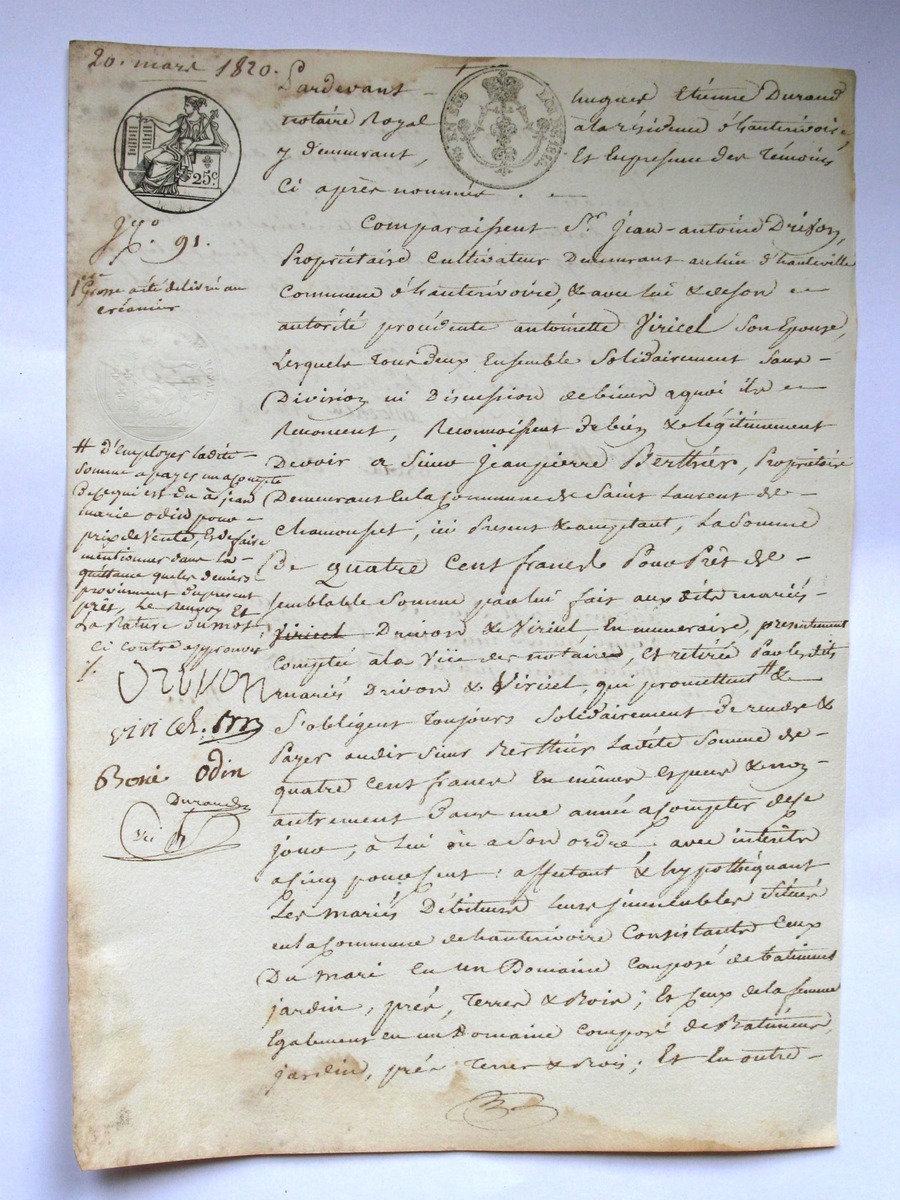 20. mars 1820.
Pardevant hugues Etienne Durand
notaire Royal à la résidence d'hauterivoire,
y demeurant, Et En presence des Témoins
Ci après nommés . . —
25.c
N.o 91.
1ere Grosse a été délivrée au
créancier
Comparaissent Sr. Jean-antoine Drivon,
Propriétaire Cultivateur Demeurant au lieu d'hauteville
Commune d'hauterivoire, & avec lui & de son
autorité procédente antoinette Viricel Son Epouse,
Lesquels tous deux Ensemble Solidairement Sans
Division ni Discussion de biens a quoi ils
Renoncent, Reconnoissent de bien & légitimement
Devoir a Sieur Jean pierre Berthier, Propriétaire
Demeurant En la Commune de Saint Laurent de
Chamousset, ici Present & acceptant, La Somme
De quatre Cent francs Pour Prêt de
semblable Somme par lui fait aux dits mariés
Viricel Drivon & Viricel En numeraire, presentement
comptée à la Vüe des notaires, Et retirée Par les dits
mariés Drivon & Viricel, qui promettent # &
S'obligent Toujours Solidairement de rendre &
Payer audit Sieur Berthier La dite Somme de
quatre Cent francs En mêmes Especes & non
autrement Dans une année a Compter de ce
jour, à Lui ou a Son ordre avec intérêts
a cinq pour cent : affectant & hypothéquant
Les mariés Débiteurs leurs immeubles Situés
en la Commune de hauterivoire Consistants Ceux
Du mari En un Domaine composé de batiments
jardin, prés, Terres & Bois ; Et Ceux de la femme
Egalement en un Domaine composé de Batiments,
jardin, prés Terres & Bois ; Et En outre
# d'Employer la dite
Somme a payer un acompte
De ce qui est Du à jean
marie odin pour
prix de Vente, Et de faire
mentionner dans la
quittance que les deniers
proviennent Du present
prêt, Le Renvoi Et
La Rature Du mot
Ci contre approuvés
Drivon
viricel
Boné Odin
Durand